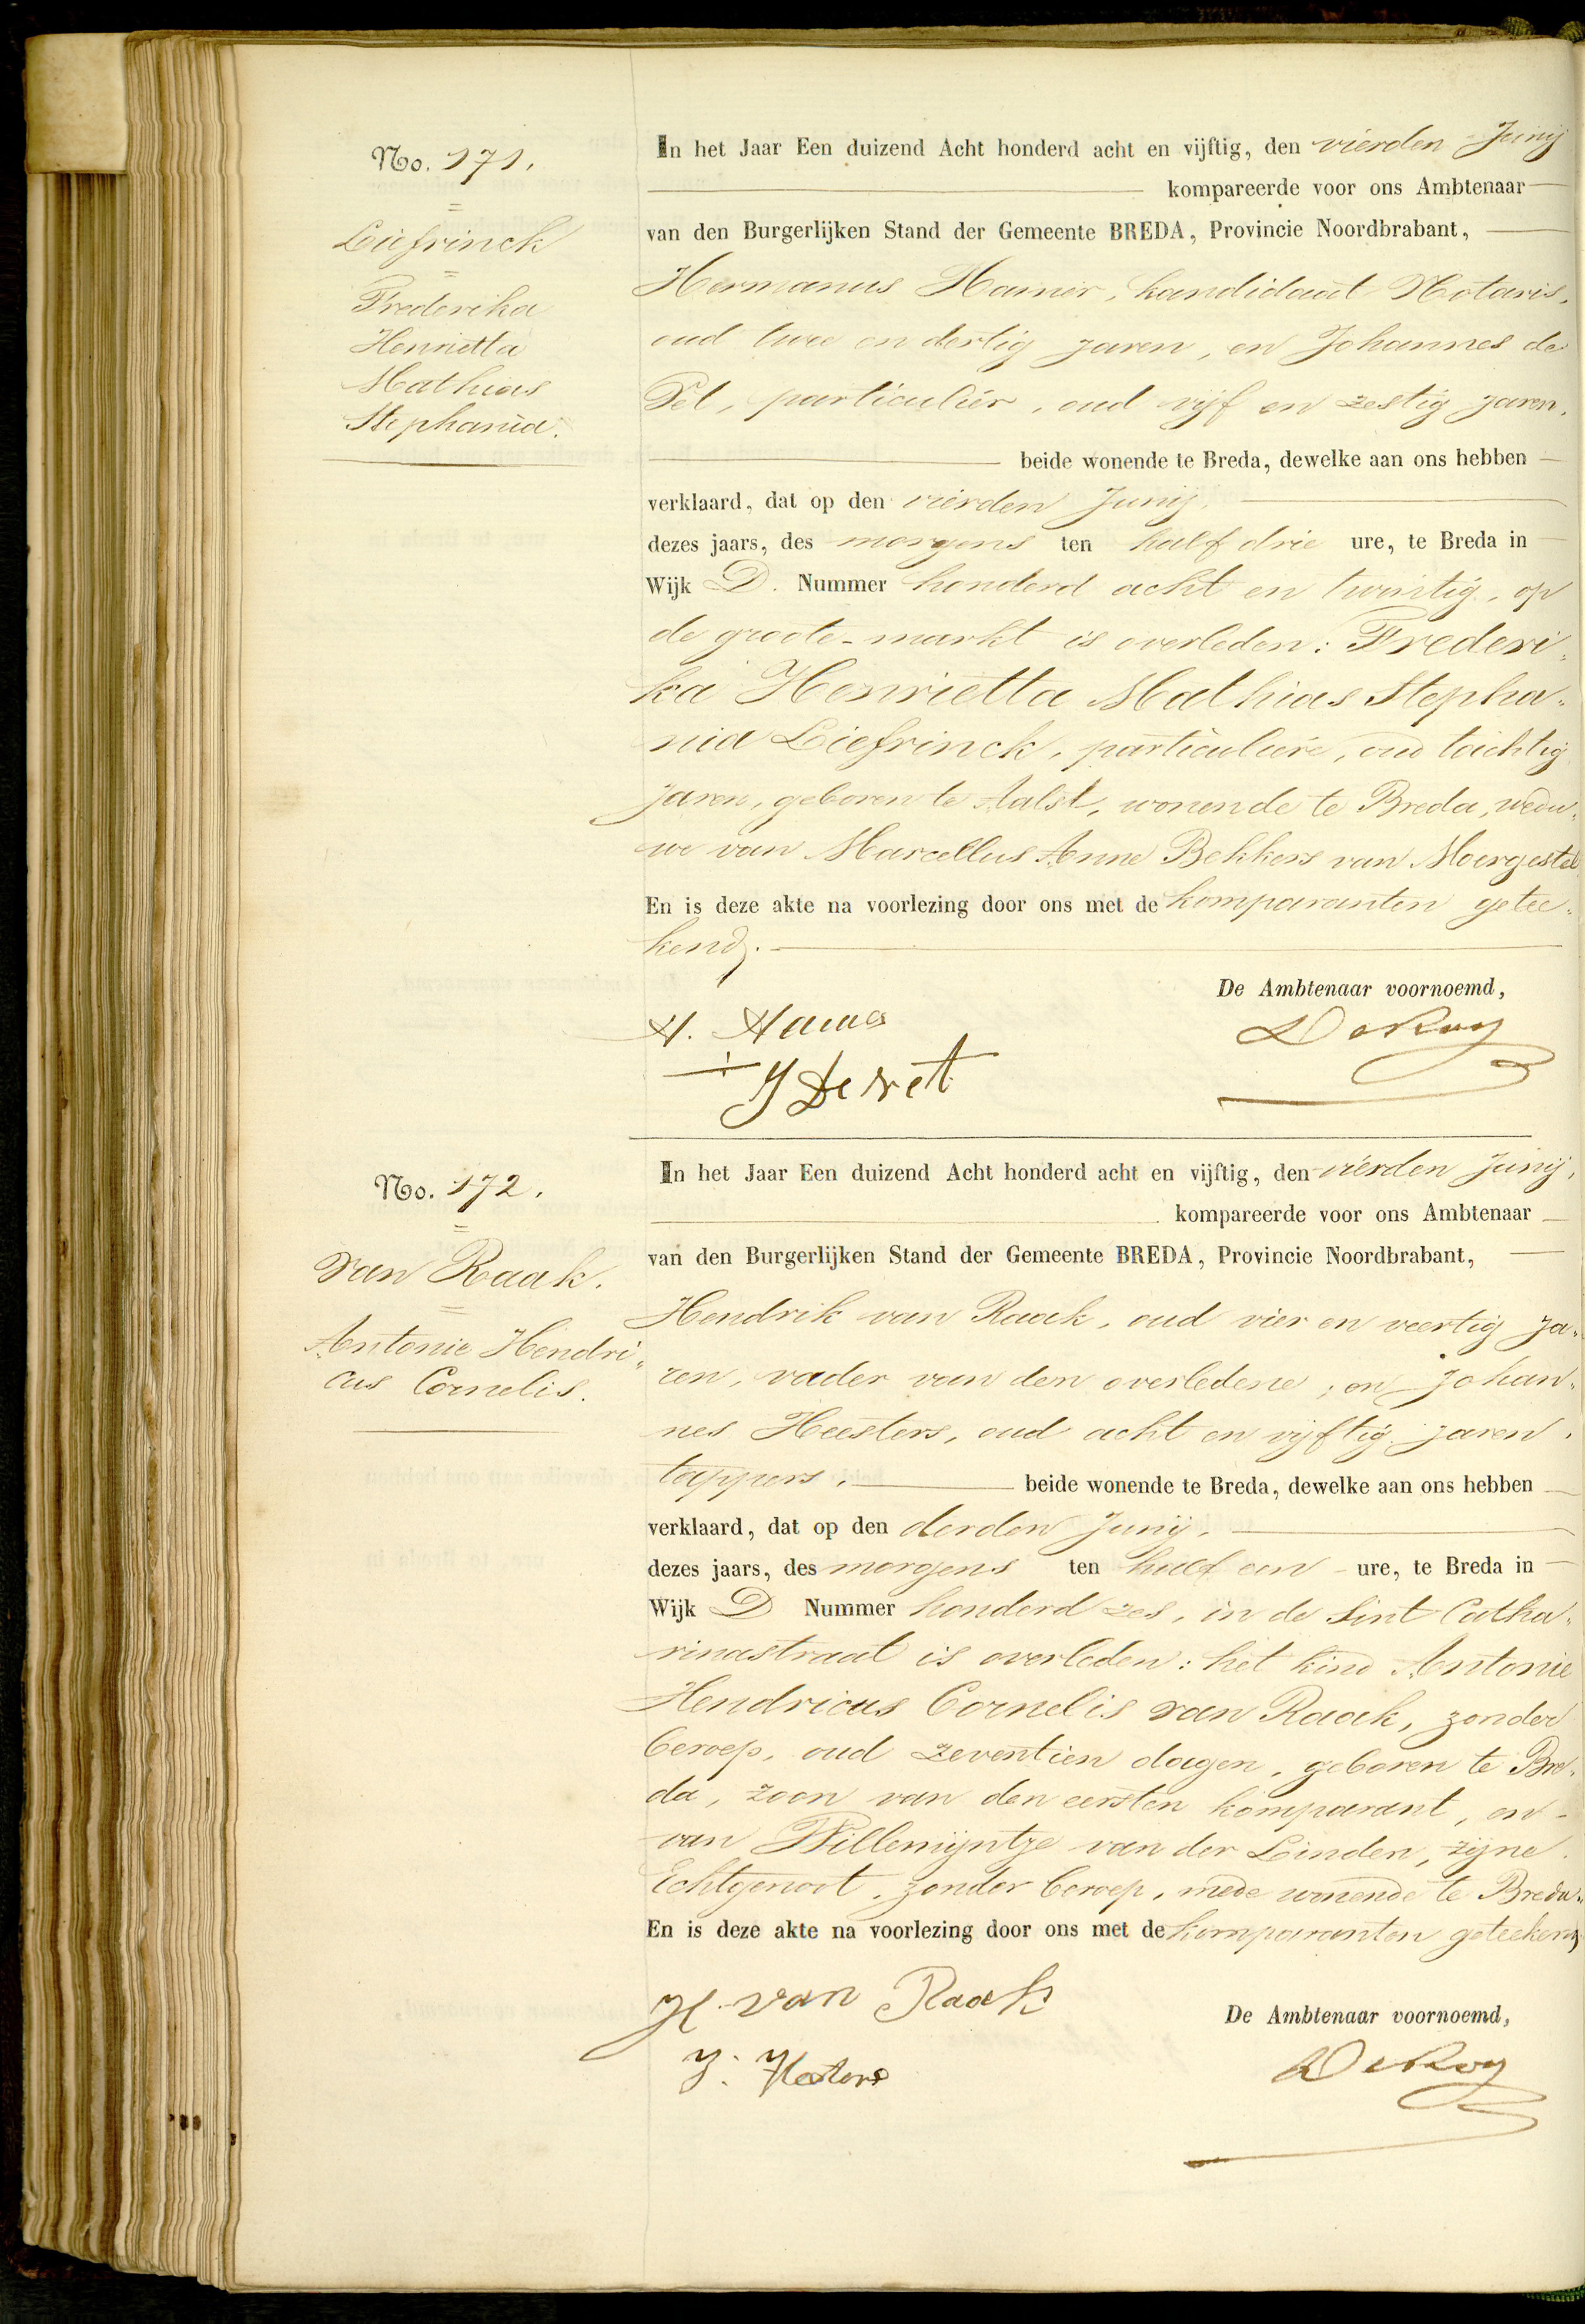 No. 171.
=
Liefrinck
=
Frederika
Henrietta
Mathias
Stephania.
In het Jaar Een duizend Acht honderd acht en vijftig, den vierden Junij
kompareerde voor ons Ambtenaar
van den Burgerlijken Stand der Gemeente BREDA, Provincie Noordbrabant,
Hermanus Hamer, kandidaat Notaris,
oud twee en dertig jaren, en Johannes de
Pet, particulier, oud vijf en zestig jaren,
beide wonende te Breda, dewelke aan ons hebben
verklaard, dat op den vierden Junij,
dezes jaars, des morgens ten half drie ure, te Breda in
Wijk D. Nummer honderd acht en twintig, op
de groote-markt is overleden: Frederi„
ka Henrietta Mathias Stepha„
nia Liefrinck, particuliere, oud tachtig
jaren, geboren te Aalst, wonende te Breda, wedu„
we van Marcellus Anne Bekkers van Moergestel
En is deze akte na voorlezing door ons met de komparanten getee„
kend.
De Ambtenaar voornoemd,
H. Hamer
DeRoy
J De Pet
No. 172.
=
van Raak.
=
Antonie Hendri„
cus Cornelis.
In het Jaar Een duizend Acht honderd acht en vijftig, den vierden Junij,
kompareerde voor ons Ambtenaar
van den Burgerlijken Stand der Gemeente BREDA, Provincie Noordbrabant,
Hendrik van Raak, oud vier en veertig ja„
ren, vader van den overledene, en Johan„
nes Heesters, oud acht en vijftig jaren,
tappers, beide wonende te Breda, dewelke aan ons hebben
verklaard, dat op den derden Junij,
dezes jaars, des morgens ten half een ure, te Breda in
Wijk D Nummer honderd zes, in de Sint Catha„
rinastraat is overleden: het kind Antonie
Hendricus Cornelis van Raak, zonder
beroep, oud zeventien dagen, geboren te Bre„
da, zoon van den eersten komparant, en
van Willemijntje van der Linden, zijne
Echtgenoot, zonder beroep, mede wonende te Breda.
En is deze akte na voorlezing door ons met de komparanten geteekend
H. van Raak
De Ambtenaar voornoemd,
J. Hesters
DeRoy